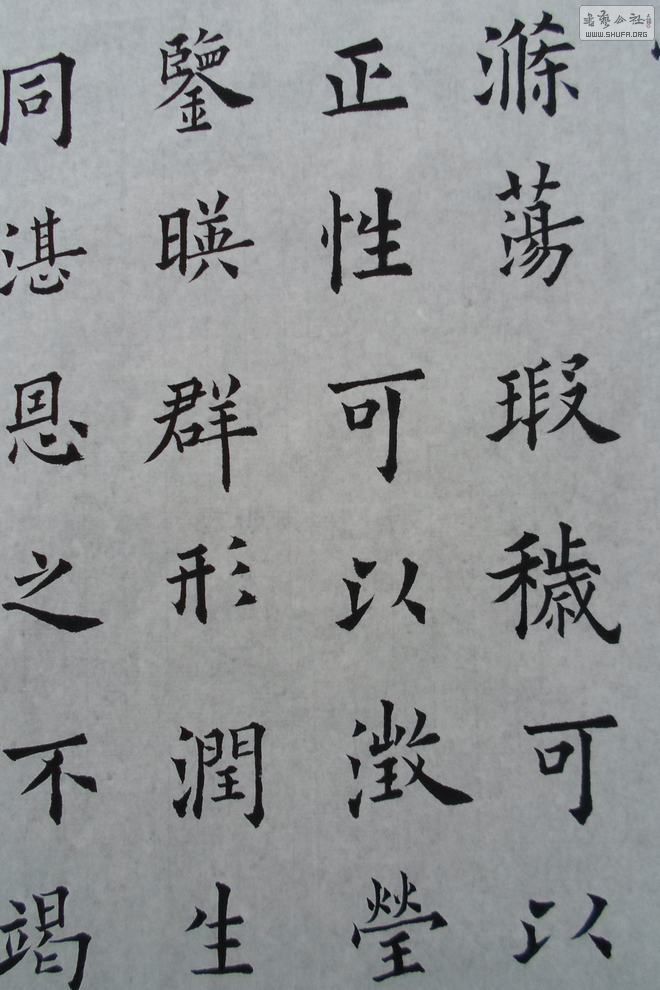 滌蕩瑕穢可以
正性可以澂瑩
鑒暎群形潤生
同湛恩之不竭
書藝公社
WWW.SHUFA.ORG